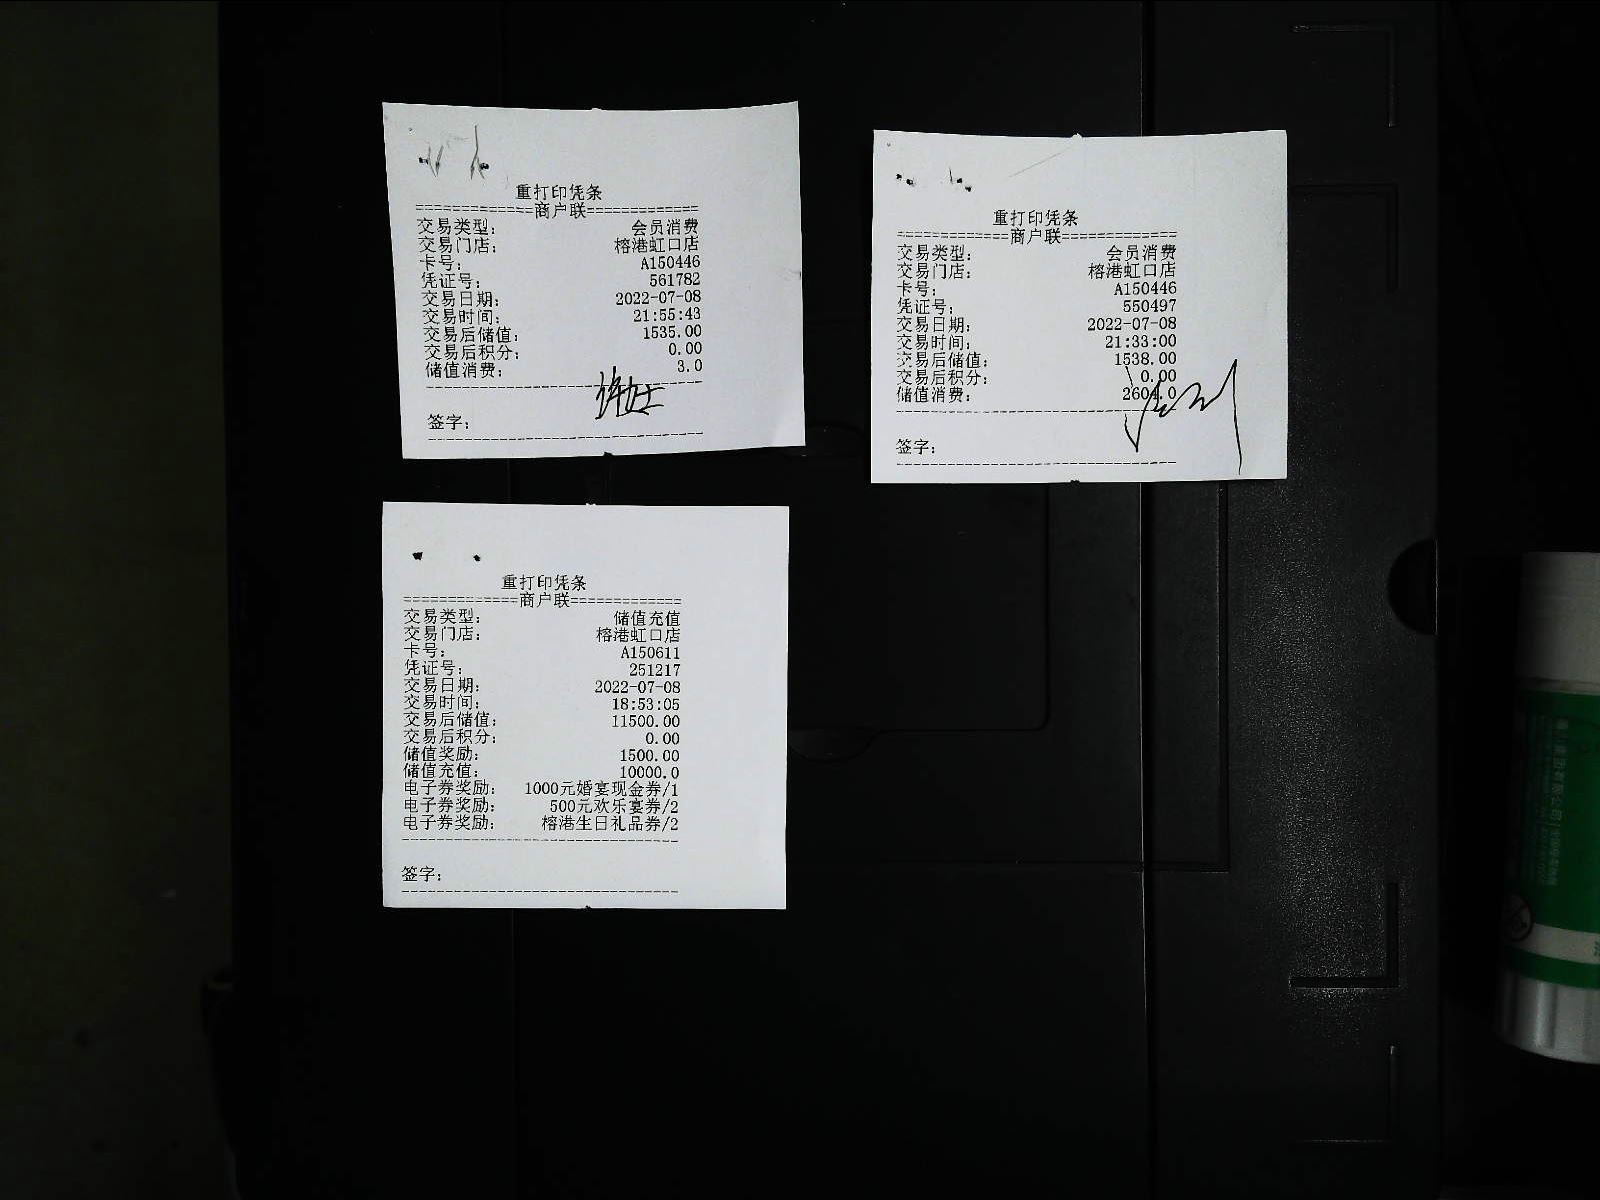 重打印凭条
=============商户联=============
交易类型: 会员消费
交易门店: 榕港虹口店
卡号: A150446
凭证号: 561782
交易日期: 2022-07-08
交易时间: 21:55:43
交易后储值: 1535.00
交易后积分: 0.00
储值消费: 3.0
签字:
重打印凭条
=============商户联=============
交易类型: 会员消费
交易门店: 榕港虹口店
卡号: A150446
凭证号: 550497
交易日期: 2022-07-08
交易时间: 21:33:00
交易后储值: 1538.00
交易后积分: 0.00
储值消费: 2604.0
签字:
重打印凭条
=============商户联=============
交易类型: 储值充值
交易门店: 榕港虹口店
卡号: A150611
凭证号: 251217
交易日期: 2022-07-08
交易时间: 18:53:05
交易后储值: 11500.00
交易后积分: 0.00
储值奖励: 1500.00
储值充值: 10000.0
电子券奖励: 1000元婚宴现金券/1
电子券奖励: 500元欢乐宴券/2
电子券奖励: 榕港生日礼品券/2
签字: